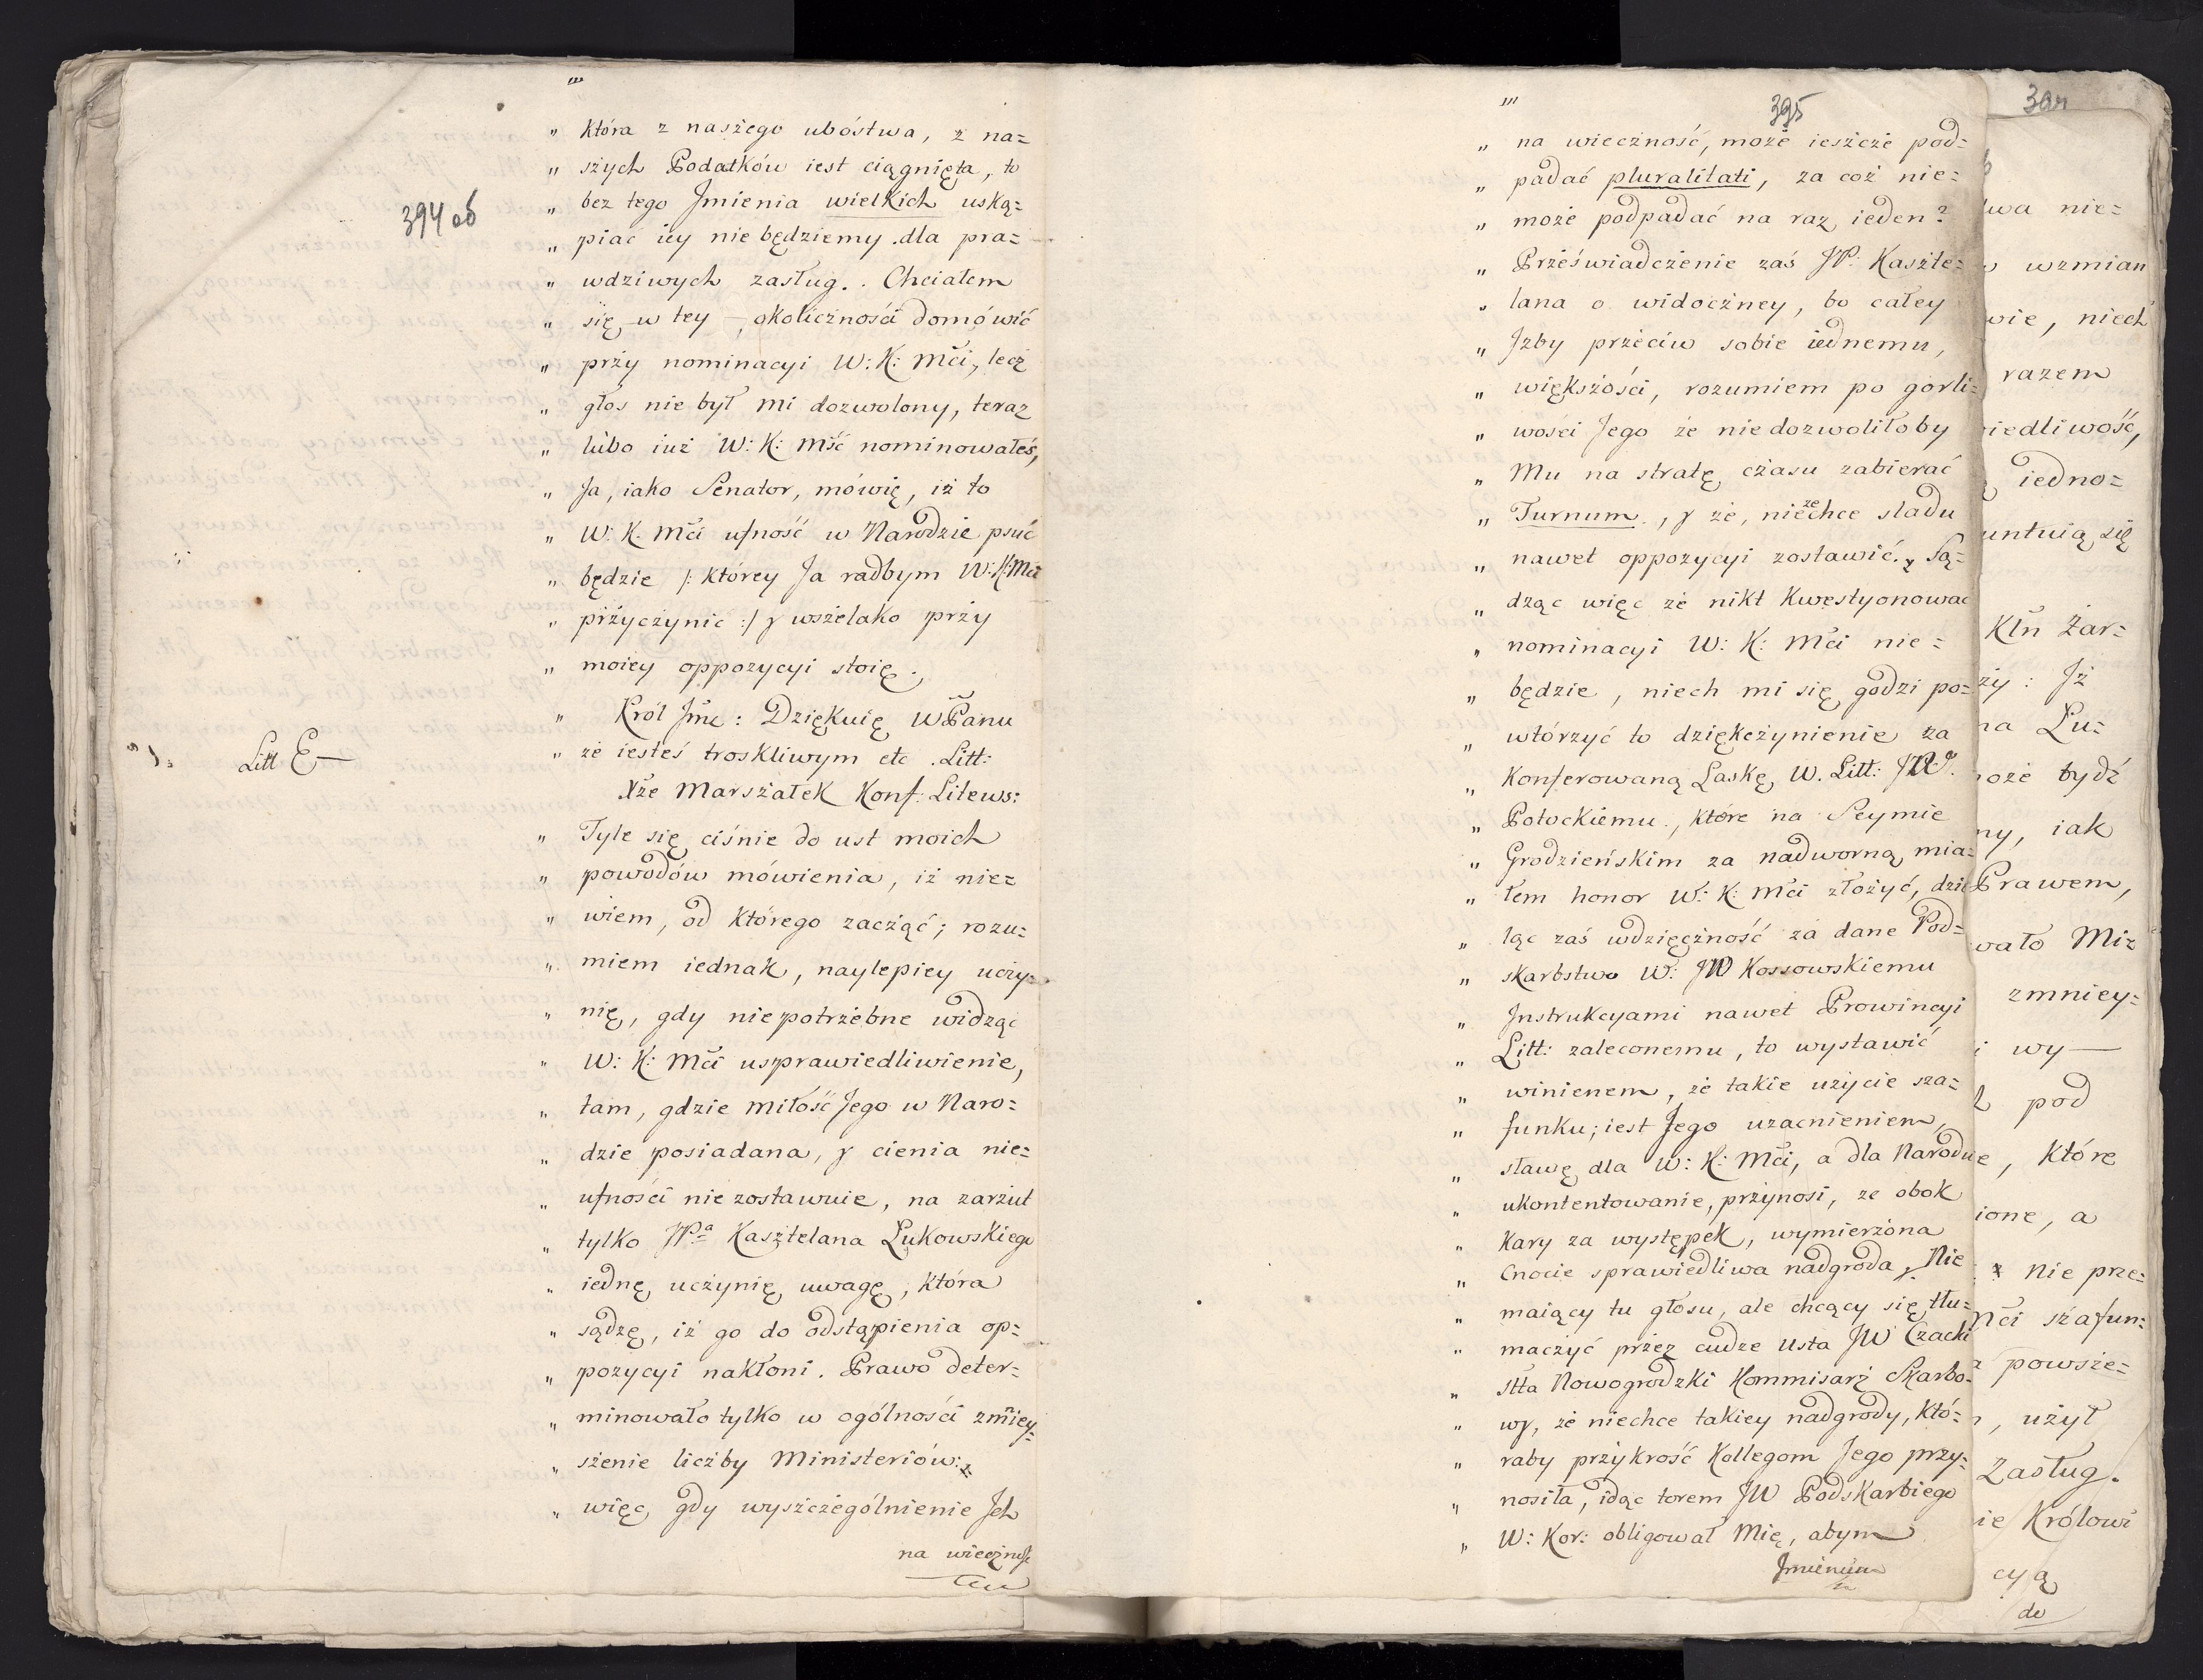 394 об
"
„ która z naszego ubóstwa, z na=
„ szych Podatków iest ciągnięta, to
„ bez tego Jmienia wielkich uską=
„ piać iey nie będziemy dla pra=
„ wdziwych zasług. Chciałem
„ się w tey — okoliczności domówić
„ przy nominacyi W: K: Mci, lecz
„ głos nie był mi dozwolony, teraz
„ lubo iuż W: K: Mść nominowałeś,
„ Ja, iako Senator, mówię, iż to
„ W: K. Mci ufność w Narodzie psuć
„ będzie /: którey Ja radbym W:K:Mci
„ przyczynić :/ y wszelako przy
„ moiey oppozycyi stoię.
„ Król Jmć: Dziękuię WPanu
Litt E —
„ że iesteś troskliwym etc. Litt:
Xże Marszałek Konf: Litews:
„ Tyle się ciśnie do ust moich
„ powodów mówienia, iż nie=
„ wiem, od którego zacząć; rozu=
„ miem iednak, naylepiey uczy=
„ nię, gdy niepotrzebne widząc
„ W: K: Mci usprawiedliwienie,
„ tam, gdzie miłość Jego w Naro=
„ dzie posiadana, y cienia nie=
„ ufności nie zostawuie, na zarzut
„ tylko JPa Kasztelana Łukowskiego
„ iednę uczynię uwagę, która
„ sądzę, iż go do odstąpienia op=
„ pozycyi nakłoni. Prawo deter=
„ minowało tylko w ogólności zmniey=
„ szenie liczby Ministeriów:
„ więc gdy wyszczególnienie Jch
na wieczność
395
"
„ na wieczność, może ieszcze pod=
„ padać pluralitati, za coż nie=
„ może podpadać na raz ieden?
„ Przeświadczenie zaś JP: Kaszte=
„ lana o widoczney, bo całey
„ Jzby przeciw sobie iednemu,
„ większości, rozumiem po gorli=
„ wości Jego że nie dozwoliłoby
„ Mu na stratę czasu zabierać
„ Turnum, y że, nieżechce sladu
„ nawet oppozycyi zostawić. Są=
„ dząc więc że nikt Kwestyonować
„ nominacyi W: K: Mci nie=
„ będzie, niech mi się godzi po=
„ wtórzyć to dziękczynienie za
„ Konferowaną Laskę W. Litt: JW.
„ Potockiemu, które na Seymie
„ Grodzieńskim za nadworną mia=
„ łem honor W: K: Mci złożyć, dzie
„ ląc zaś wdzięczność za dane Pod=
„ skarbstwo W: JW Kossowskiemu
„ Jnstrukcyami nawet Prowincyi
„ Litt: zaleconemu, to wystawić
„ winienem, że takie użycie sza=
„ funku; iest Jego uzacnieniem,
„ sławę dla W: K: Mci, a dla Narodu
„ ukontentowanie, przynosi, że obok
„ Kary za występek, wymierzona
„ Cnocie sprawiedliwa nadgroda. Nie
„ maiący tu głosu, ale chcący się tłu=
„ maczyć przez cudze usta JW Czacki
„ Stta Nowogrodzki Kommisarz Skarbo=
„ wy, że niechce takiey nadgrody, któ=
„ raby przykrość Kollegom Jego przy=
„ nosiła, idąc torem JW Podskarbiego
„ W: Kor: obligował Mię, abym
Jmieniem
wa nie=
wzmian
wie, niech
razem
iedliwość,
iedno=
untuią się
Kłn Żar=
ży: Jż
na Lu=
oże bydź
ny, iak
Prawem,
wało Mi=
zmniey=
i wy—
pod
e, które
ione, a
nie prze=
Mci szafun=
powsze=
, użył
Zasług.
ie Królowi
cyą
do